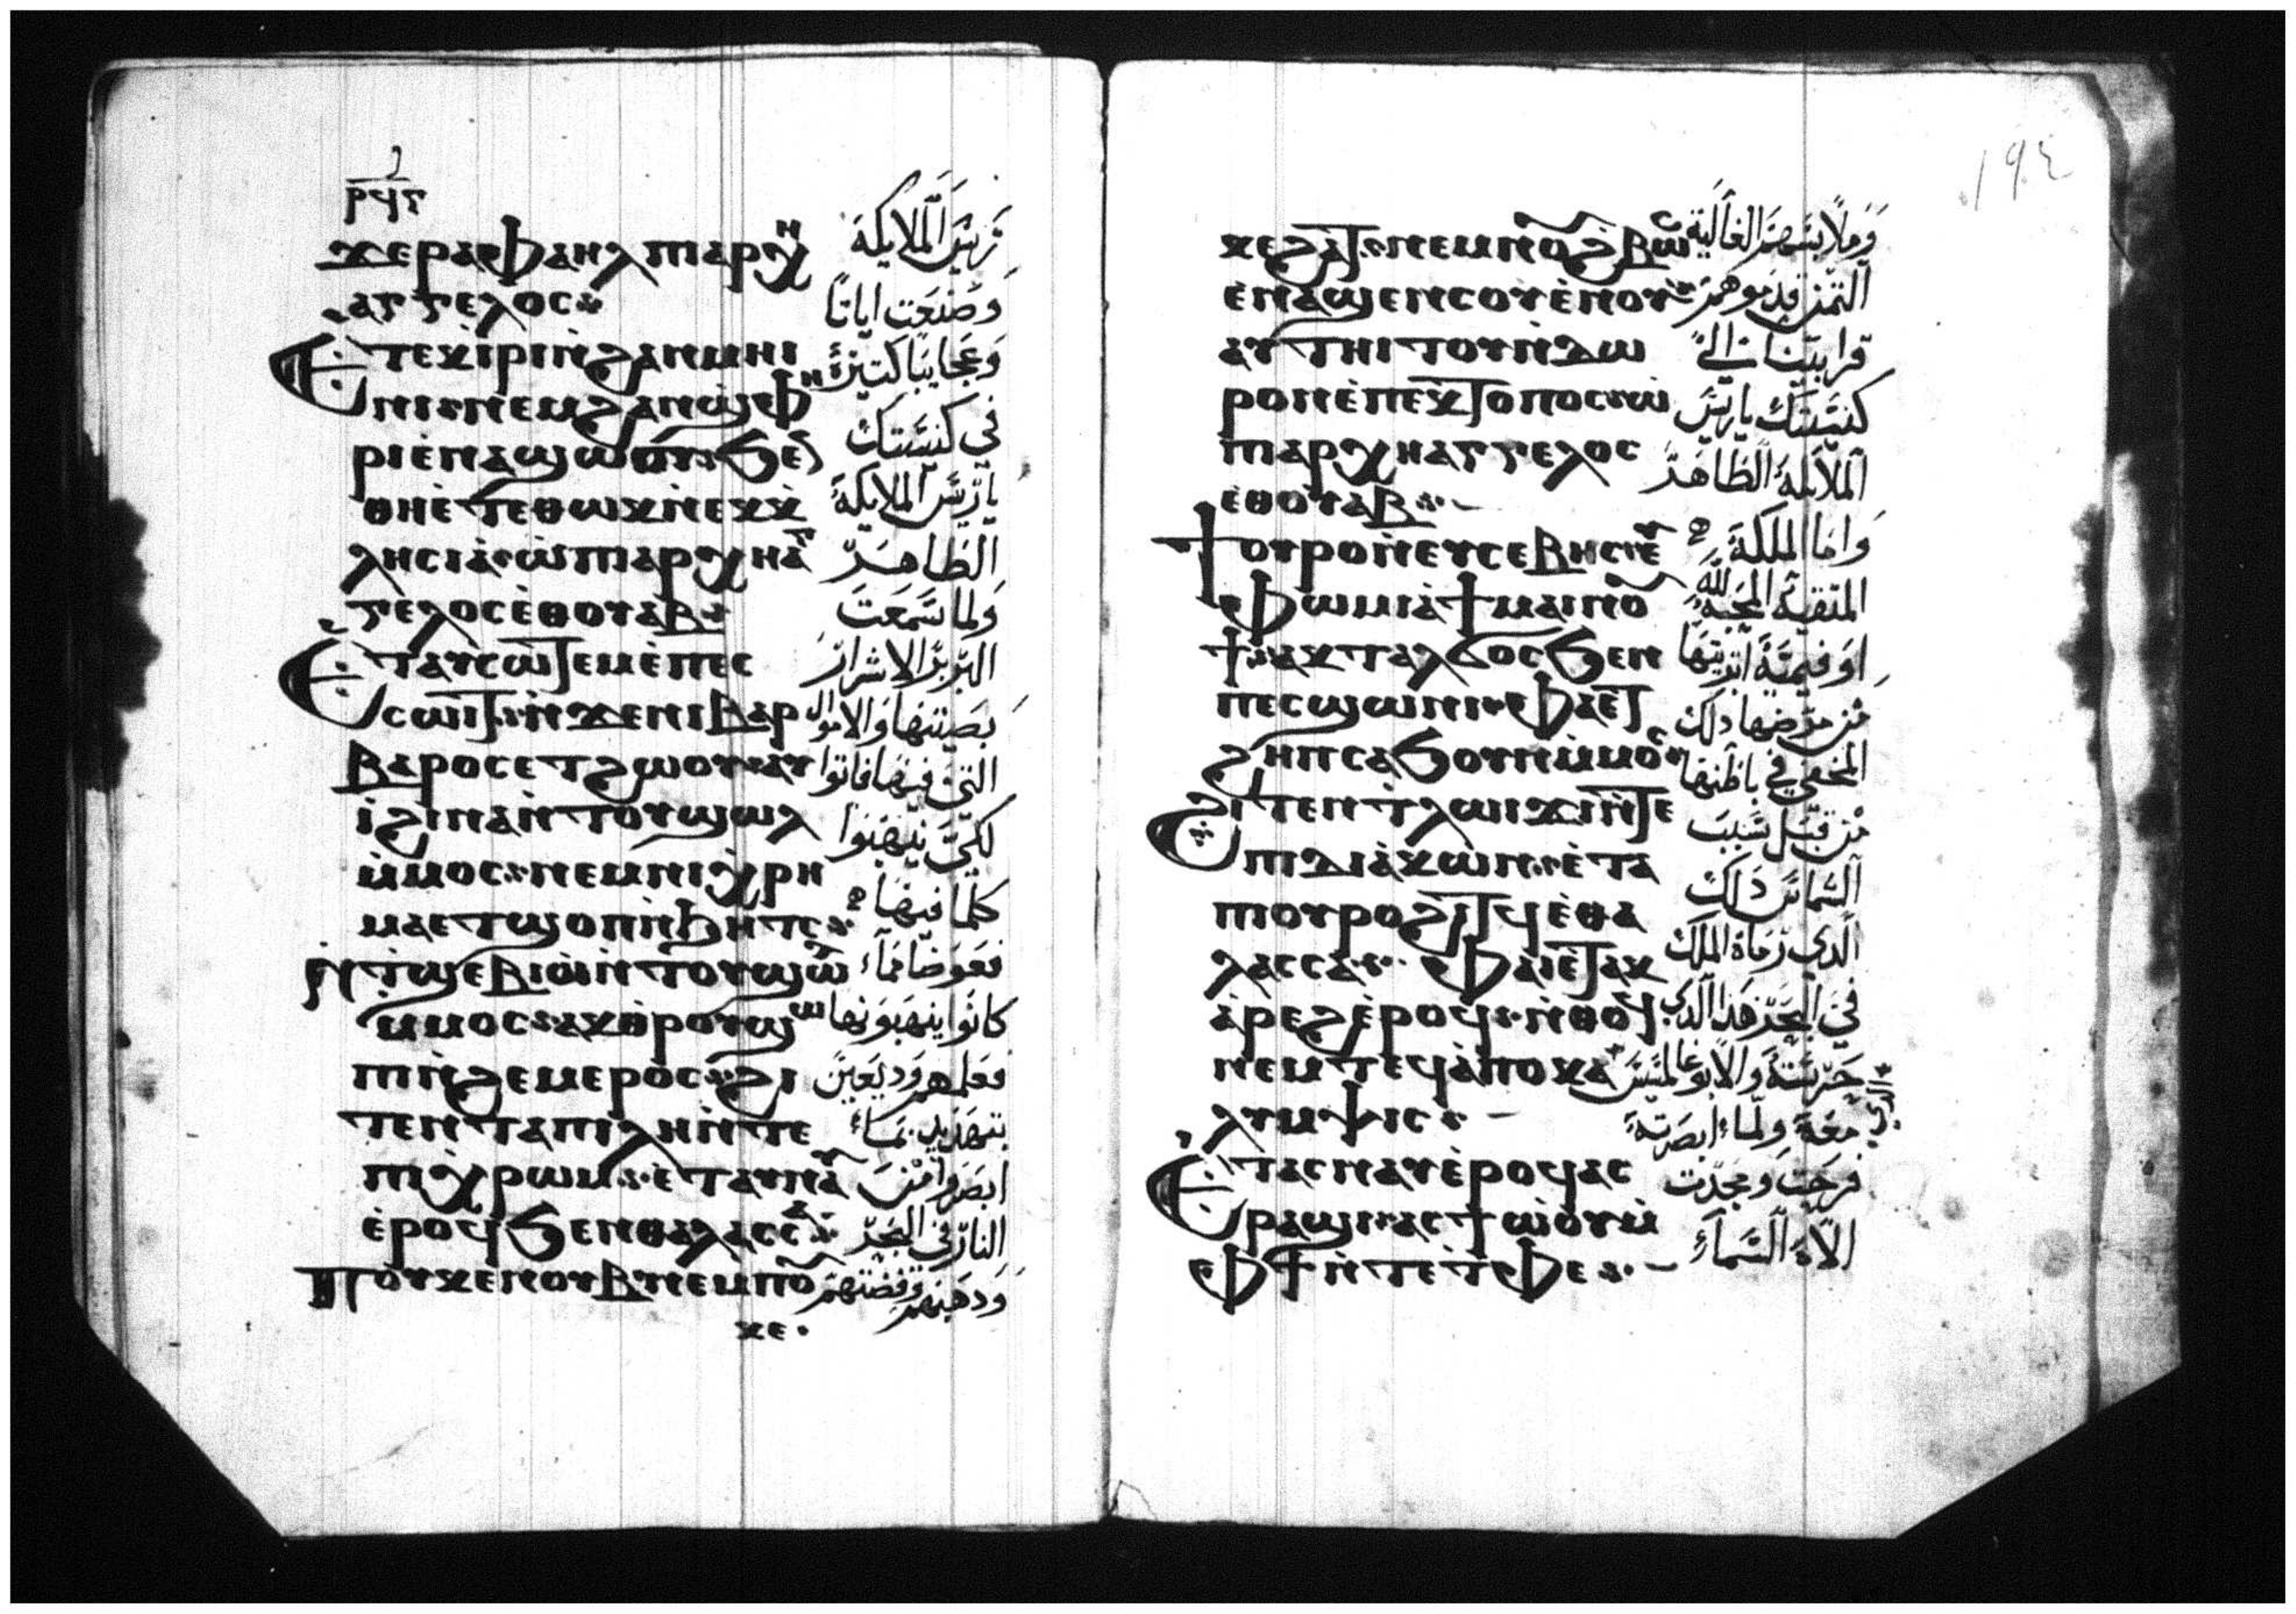 ⲣϥⲋ
ϫⲉⲣⲁⲫⲁⲏⲗ ⲡⲓⲁⲣⲭⲏ
ⲁⲅⲅⲉⲗⲟⲥ
Ⲉⲧⲉⲕⲓⲣⲓ ⲛ̀ϩⲁⲛⲙⲏⲓ
ⲛⲓ ⲛⲉⲙ ϩⲁⲛϣⲫⲏ
ⲣⲓ ⲉⲛⲁϣⲱⲟⲩ ϧⲉⲛ
ⲑⲏⲉⲧⲉ ⲑⲱⲕ ⲛ̀ⲉⲕⲕ̀
ⲗⲏⲥⲓⲁ ⲱ̀ ⲡⲓⲁⲣⲭⲏⲁⲅ
ⲅⲉⲗⲟⲥ ⲉ̀ⲑⲟⲩⲁⲃ
Ⲉⲧⲁⲩⲥⲱⲧⲉⲙ ⲉ̀ⲡⲉⲥ
ⲥⲱⲓⲧ ⲛ̀ϫⲉⲛⲓⲃⲁⲣ
ⲃⲁⲣⲟⲥ ⲉⲧϩⲱⲟⲩ ⲁⲩ
ⲓ̀ ϩⲓⲛⲁ ⲛ̀ⲧⲟⲩϣⲱⲗ
ⲙ̀ⲙⲟⲥ ⲛⲉⲙ ⲛⲓⲭⲣⲏ
ⲙⲁ ⲉⲧϣⲟⲡ ⲛ̀ϧⲏⲧⲥ
Ⲛ̀ⲧϣⲉⲃⲓⲱ̀ ⲛ̀ⲧⲟⲩϣⲱ
ⲙ̀ⲙⲟⲥ ⲁⲕⲑ̀ⲣⲟⲩϣⲱ
ⲡⲓ ⲛ̀ϩⲉⲙⲉⲣⲟⲥ ϩⲓ
ⲧⲉⲛ ⲧⲁⲡⲓⲗⲏ ⲛ̀ⲧⲉ
ⲡⲓⲭⲣⲱⲙ ⲉ̀ⲧⲁⲩⲛⲁⲩ
ⲉ̀ⲣⲟϥ ϧⲉⲛ ⲑⲁⲗⲁⲥⲥⲁ
Ⲡⲟⲩⲕⲉⲛⲟⲩⲃ ⲛⲉⲙ ⲡⲟⲩ
ⲕⲉ
رييس الملايكة
وصنعت اياتا
وعجايبا كتيرة
في كنيستك
يا رييس الملايكة
الطاهر
ولما سمعت
البربر الاشرار
بصيتها والاموال
التي فيها فاتوا
لكي ينهبوا
كلما فيها
فعوضا مما
كانوا ينهبونها
فعلهم وديعين
بتهديد
ابصروا من
النار في البحر
ودهبهم وفضتهم
١٩٤
ⲕⲉϩⲁⲧ ⲛⲉⲙ ⲛⲟⲩϩⲃⲱⲥ
ⲉ̀ⲛⲁϣⲉⲛⲥⲟⲩⲉ̀ⲛⲟⲩ
ⲁⲩⲧⲏⲓⲧⲟⲩ ⲛ̀ⲇⲱ
ⲣⲟⲛ ⲉ̀ⲡⲉⲕⲧⲟⲡⲟⲥ ⲱ̀
ⲡⲓⲁⲣⲭⲏⲁⲅⲅⲉⲗⲟⲥ
ⲉ̀ⲑⲟⲩⲁⲃ
Ϯⲟⲩⲣⲟ ⲛ̀ⲉⲩⲥⲉⲃⲏⲥⲧⲉ
ⲉⲩⲫⲱⲙⲓⲁ ϯⲙⲁⲓⲛⲟⲩ
ϯ ⲁⲕⲧⲁⲗϭⲟⲥ ϧⲉⲛ
ⲡⲉⲥϣⲱⲛⲓ ⲫⲁⲉⲧ
ϩⲏⲡ ⲥⲁϧⲟⲩⲛ ⲙ̀ⲙⲟⲥ
Ϩⲓⲧⲉⲛ ⲧ̀ⲗⲱⲓϫⲓ ⲛ̀ⲧⲉ
ⲡⲓⲇⲓⲁ̀ⲕⲱⲛ ⲉ̀ⲧⲁ
ⲡⲓⲟⲩⲣⲟ ϩⲓⲧϥ ⲉ̀ⲑⲁ
ⲗⲁⲥⲥⲁ ⲫⲁⲓⲉⲧⲁⲕ
ⲁ̀ⲣⲉϩ ⲉ̀ⲣⲟϥ ⲛ̀ⲑⲟϥ
ⲛⲉⲙ ⲧⲉϥⲁ̀ⲡⲟⲕⲁ
ⲗⲩⲙⲯⲓⲥ
Ⲉⲧⲁⲥⲛⲁⲩ ⲉ̀ⲣⲟϥ ⲁⲥ
ⲣⲁϣⲓ ⲁⲥϯⲱ̀ⲟⲩ ⲙ̀
ⲫϯ ⲛ̀ⲧⲉ ⲧ̀ⲫⲉ
وملابسهم الغالية
التمن قدموهم
قرابينا الى
كنيستك يا رييس
الملايكة الطاهر
واما الملكة
المتقية المحبة لله
اوفيمية ابريتها
من مرضها دلك
المخفي في باطنها
من قبل سبب
الشماس داك
الدي رماه الملك
في البحر هدا الدي
حرسته والابوغالمسيس
معه ولما ابصرته
فرحت ومجدت
الاه السماء